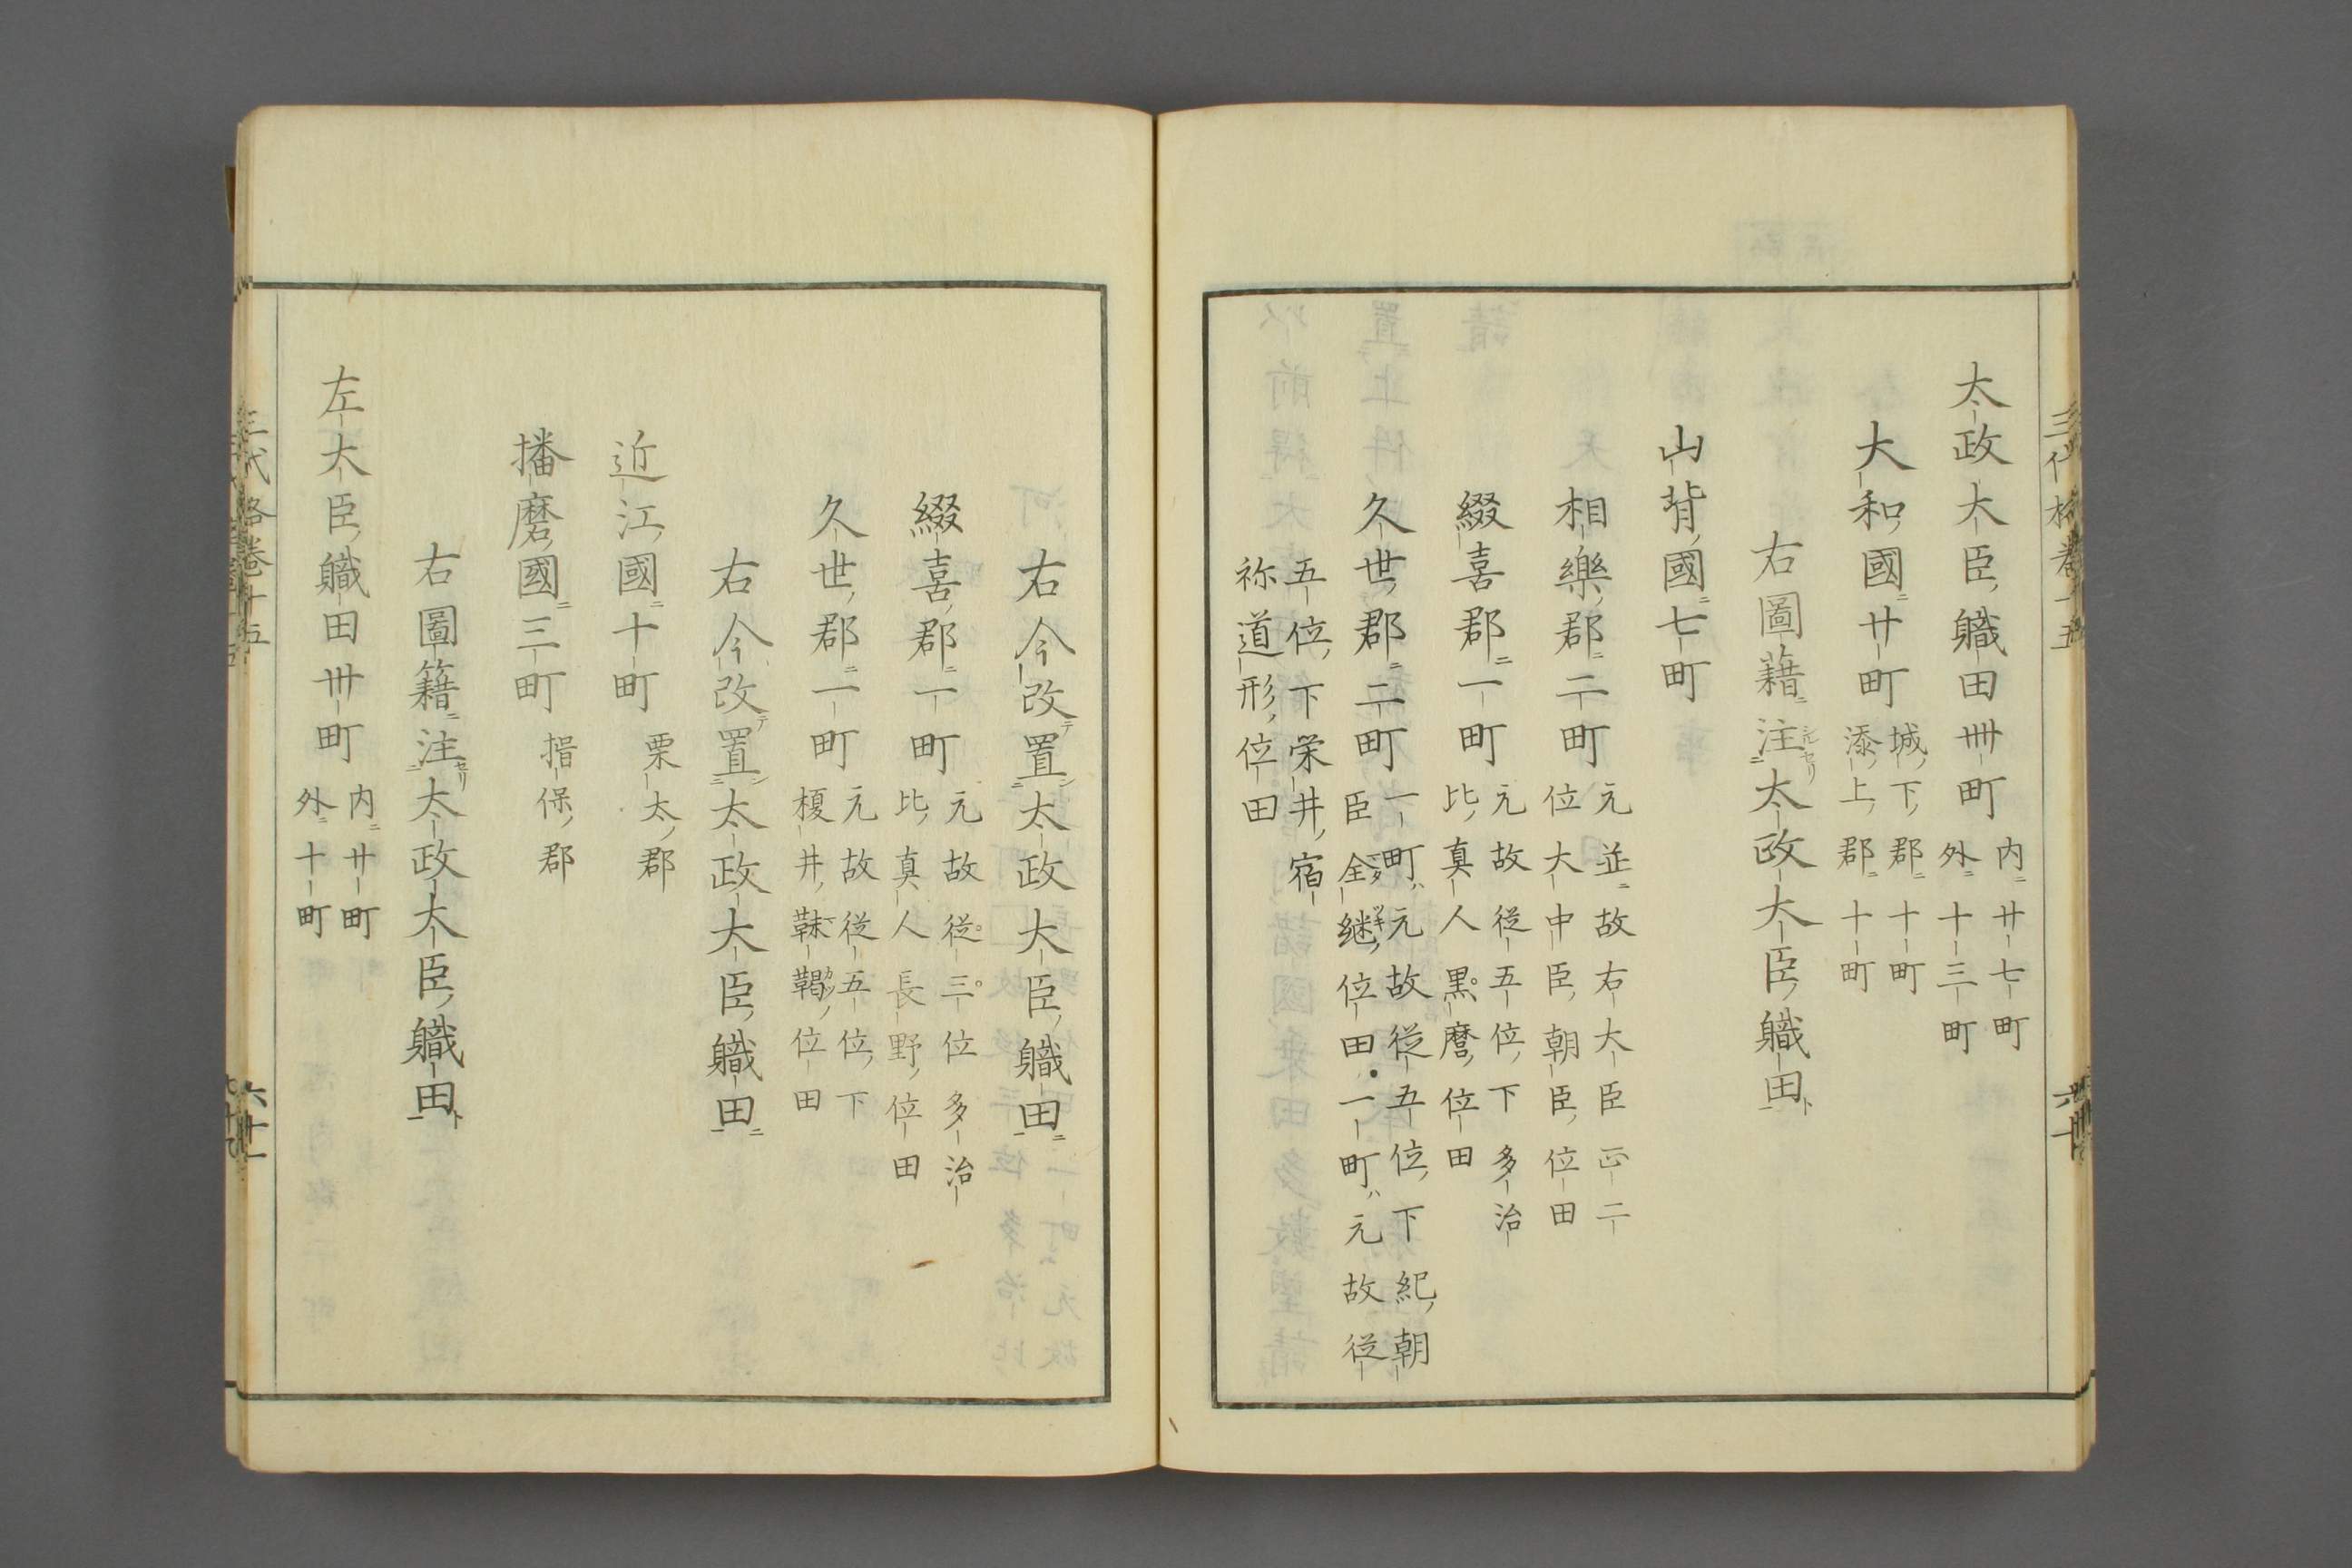 太政大臣職田卌町 内廿七町
外十三町
大和國廿町 城下郡十町
添上郡十町
右圖藉注太政大臣職田
山背國七町
相樂郡二町 元並故右大臣正二
位大中臣朝臣位田
綴喜郡一町 元故從五位下多治
比真人黒麿位田
久世郡二町 一町元故從五位下紀朝
臣全継位田一町元故從
五位下栄井宿
祢道形位田
右今改置太政大臣職田
綴喜郡一町 元故從三位多治
比真人長野位田
久世郡一町 元故從五位下
榎井靺鞨位田
右今改置太政大臣職田
近江國十町 栗太郡
播磨國三町 揖保郡
右圖籍注太政大臣職田
左大臣職田卅町 内廿町
外十町
三代格卷十五